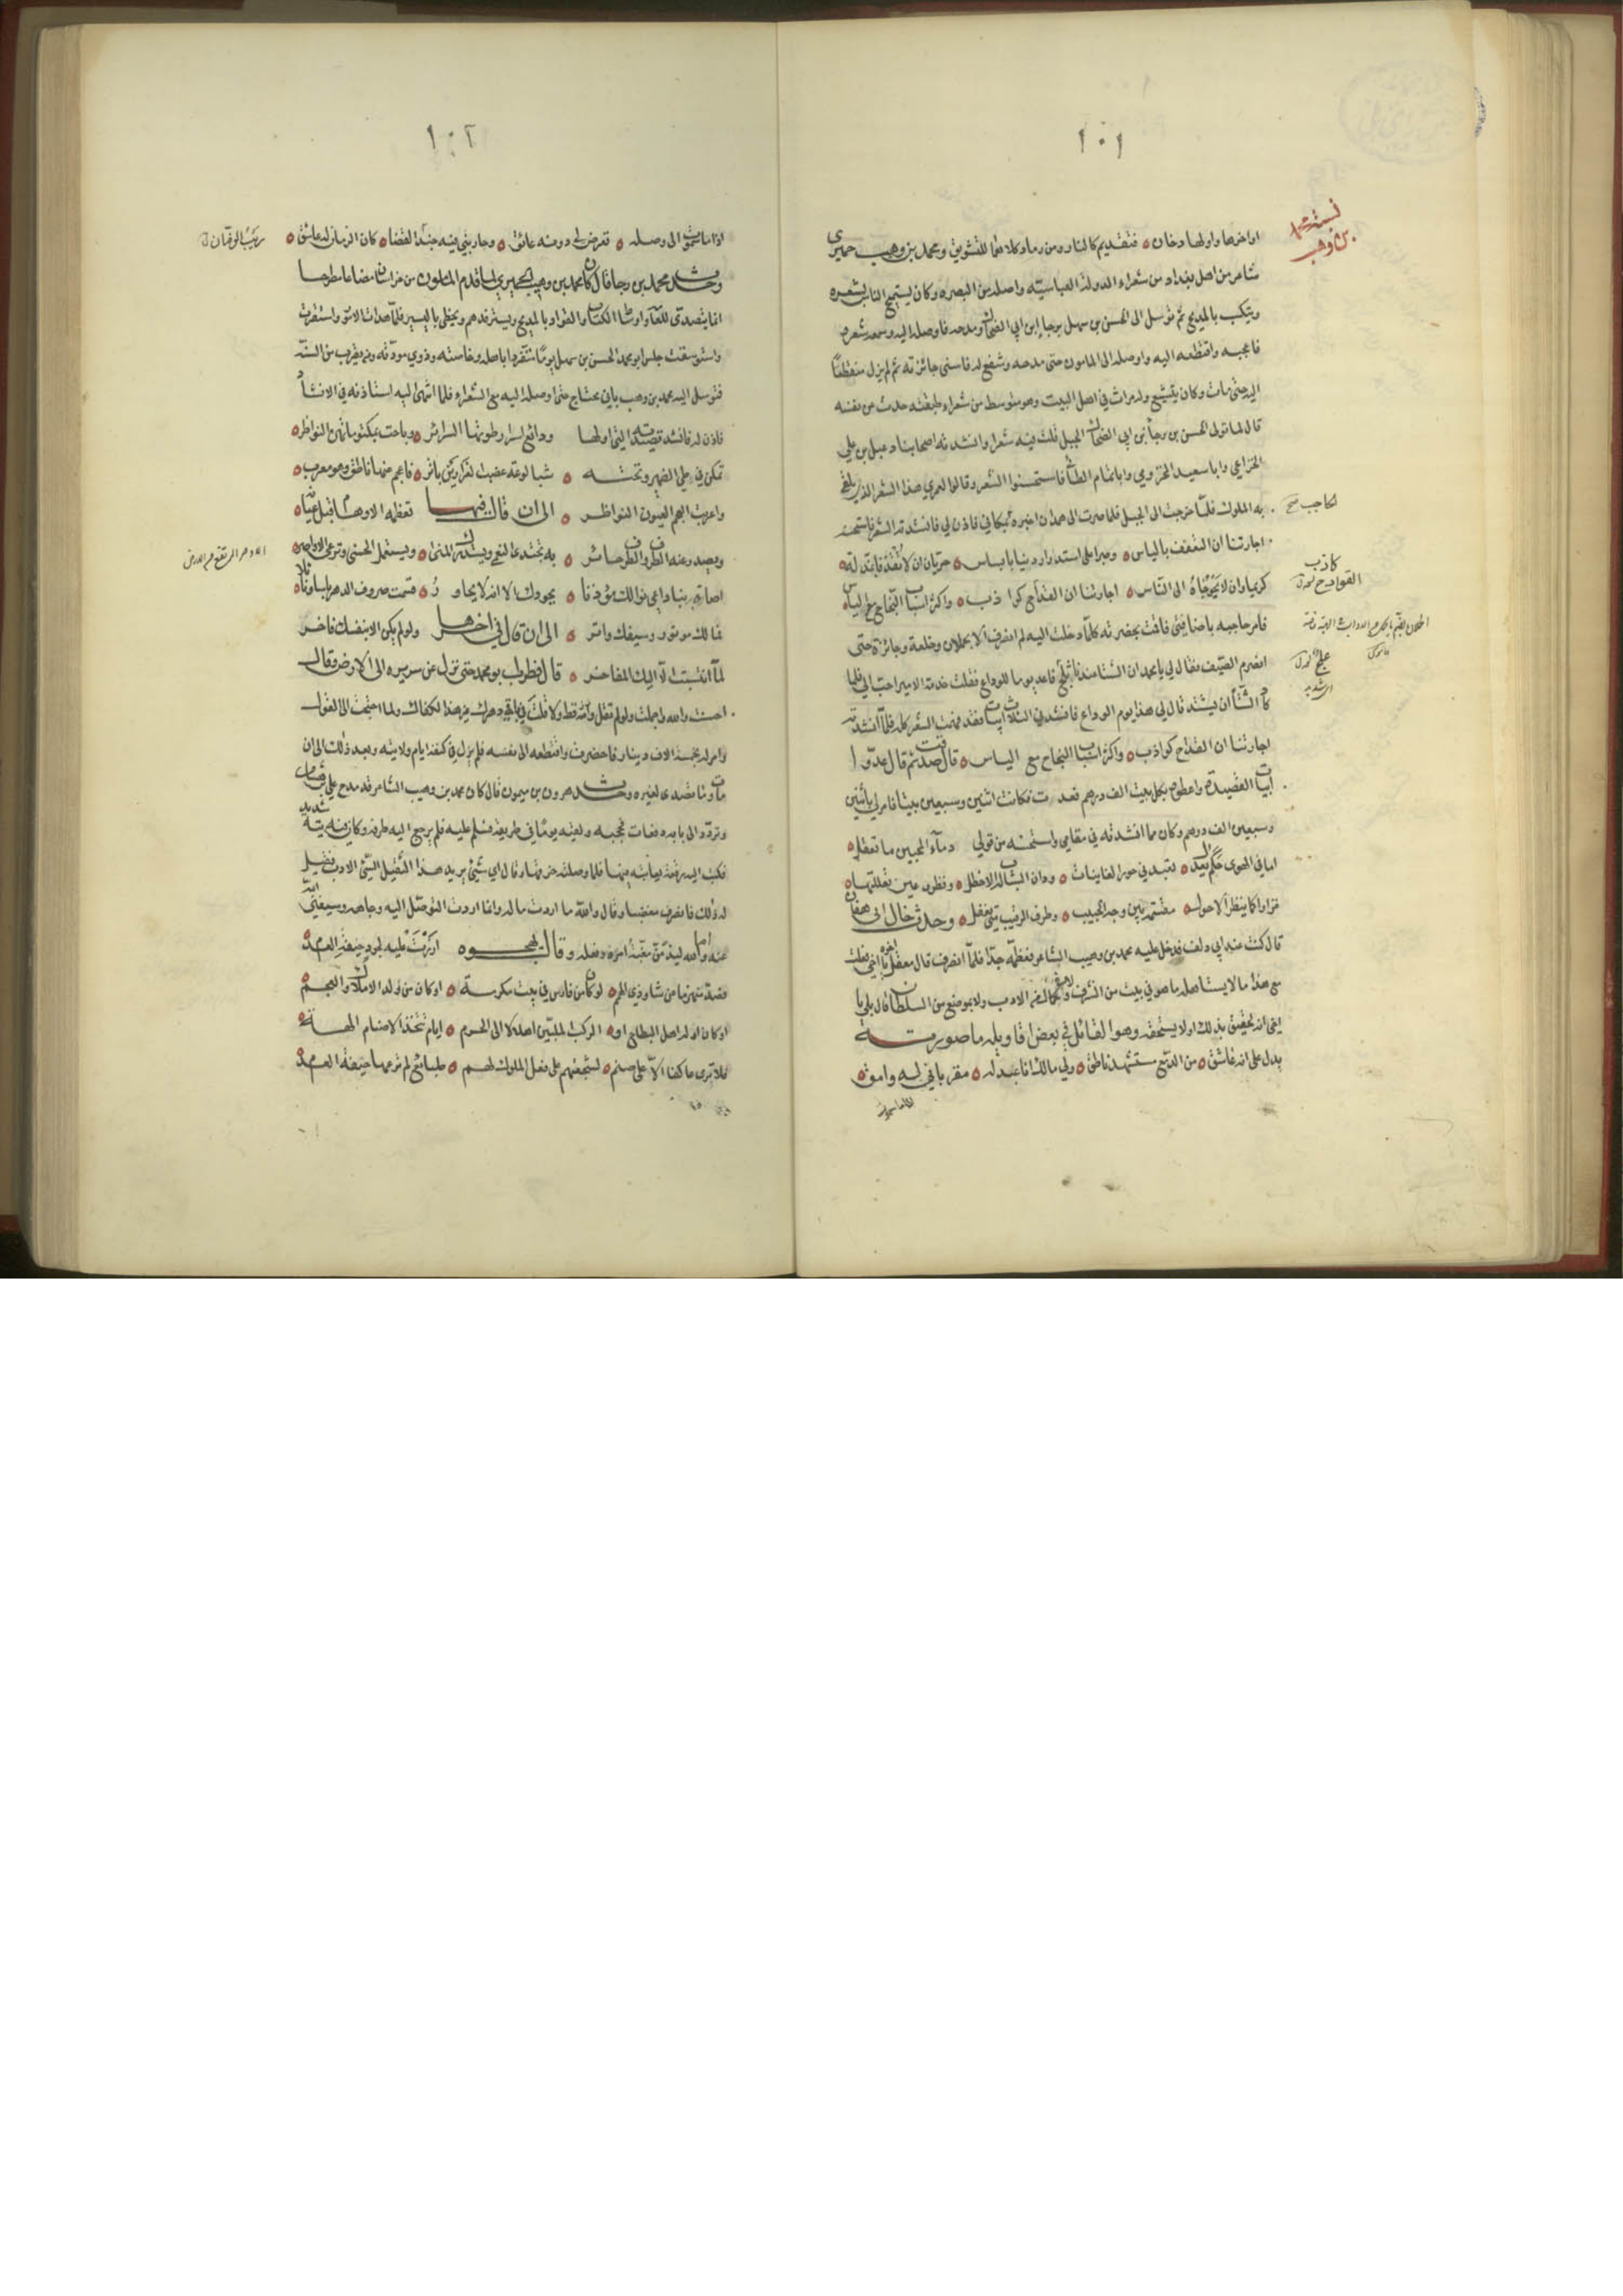 ١٠١
نسبة محمد
بن وهب
اواخرها واولها دخان ه فتقديم كالنار ومن رماد وكلاهما للتشويق ومحمد بن وهيب حميرى
شاعر من اهل بغداد من شعراء الدولة العباسيّة واصله من البصره وكان يستميح الناس بشعره
ويتكسب بالمديح ثم توسل الى الحسن بن سهل برجا ابن ابي الضحاك ومدحه فاوصله اليه وسمع شعره
فاعجبه واقتطعه اليه واوصله الى المامون حتى مدحه وشفع له فاسنى جائزته ثم لم يزل منقطعًا
اليه حتى مات وكان يتشيّع وله مراث في اهل البيت وهو متوسط من شعراء طبقته حدث عن نفسه
قال لما تولى الحسن بن رجأ بن ابي الضحاك الجبل قلت فيه شعرا وانشدته اصحابنا دعبل بن علي
الخزاعي وابا سعيد المخزومي وابا تمام الطائي فاستحسنوا الشعر وقالوا لعمري هذا الشعر الذي يلقى
به الملوك فلمّا خرجت الى الجبل فلما صرت الى همدان اخبره بمكاني فاذن لي فانشدته الشعر فاستحسنه
الحاجب صح
اجارتنا ان التعفف بالياس ه وصبرا على استدرار دنيا بابساس ه حريّان ان لا يقذفا بذلة ه
كريما وان لا يحوجاه الى الناس ه اجارتنا ان القداح كواذب ه واكثر اسباب النجاح مع الياس ه
كاذب
القوادح
فامر حاجبه باضافتي فاقمت بحضرته كلّما دخلت اليه لم انصرف الا بحملان وخلعة وجائزة حتى
انصرم الصيّف فقال لي يا محمد ان الشتا عندنا علج فاعد يوما للوداع فقلت خدمة الامير احب الي فلما
كاد الشتاء ان يشتد قال لي هذا يوم الوداع فانشدني الثلاث ابيات فقد فهمت الشعر كله فلمّا انشدته
اجارتنا ان القداح كواذب ه واكثر اسباب النجاح مع الياس ه قال صدقت ثم قال عدّوا
ابيات القصيدة واعطوه بكل بيت الف درهم فعدت فكانت اثنين وسبعين بيتا فامر لي باثنين
وسبعين الف درهم وكان مما انشدته في مقامي واستحسنه من قولي دمآء المحبين ما تعقل ه
اما في الهوى حكم يعدل ه تعبدني حور الغانيات ه ودان الشباب له الاخطل ه ونظرة عين تعللتها ه
غرارا كما ينظر الاحول ه مقسّمة بين وجه الحبيب ه وطرف الرقيب متى يغفل ه وحدث خال ابي هفان
قال كنت عند ابي دلف فدخل عليه محمد بن وهيب الشاعر فعظّمه جدّا فلمّا انصرف قال معقل اخوه يا اخي فعلت
مع هذا ما لا يستاهله ما هو في بيت من الشرف ولا في كمال من الادب ولا بموضع من السلطان قال بلى يا
اخي انه لحقيق بذلك اولا يستحقه وهو القائل في بعض اقاويله ما صورته
يدل على انه عاشق ه من الدمع مستشهد ناطق ه ولي مالك انا عبد له ه مقر باني له وامق ه
اذا ما سموت
١٠٢
اذا ما سموت الى وصله ه تعرض لي دونه عائق ه وحاربني فيه حبّذا القضا ه كان الزمان له عاشق ه
وحدث محمد بن رجا قال كان محمد بن وهيب الحميري لما قدم المامون من خراسان مضاعا مطرحا
انما يتصدّى للعامّة واوساط الكتّاب والقوّاد بالمديح ويسترفدهم ويحظى باليسير فلمّا هدات الامور واستقرت
واستوسقت جلس ابو محمد الحسن بن سهل يومًا منفردا باهله وخاصته وذوي مودّته ومن يقرب من انسه
فتوسل اليه محمد بن وهب بابن محتاج حتى اوصله اليه مع الشعراء فلما انتهى اليه استاذنه في الانشاد
فاذن له فانشد قصيدته التي اولها ودائع اسرار طوتها السرائر ه وباحت بمكتوماتهن النواظر ه
تمكن في طي الضمير وتحته ه شبا لوعة عضب الغرارين باتر ه فاعجم عنها ناطق وهو معرب ه
واعربت العجم العيون النواظر ه الى ان قال فيها تعظمه الاوهام قبل عيانه
ويصدر عنه الطرف والطرف حاسر ه به تجتدى النعمى ويستدرك المنى ه ويستكمل الحسنى وترعى الاواصر ه
اصات بنا داعي نوالك مؤذنا ه بجودك الا انه لا يحاور ه قسمت صروف الدهر باسا ونائلا
فمالك موتور وسيفك واتر ه الى ان قال في اخرها ولو لم يكن الا بنفسك فاخر
لما انتسبت الّا اليك المفاخر ه قال فطرب ابو محمد حتى نزل عن سريره الى الارض وقال
احسنت والله واجملت ولو لم تقل قط ولا قلت في باقي دهرك غير هذا لكفاك ولما احتجت الى القول
وامر له بخمسة الاف دينار فاحضرت واقتطعه الى نفسه فلم يزل في كنفه ايام ولايته وبعد ذلك الى ان
مات وما تصدى لغيره وحدث هرون بن ميمون قال كان محمد بن وهيب الشاعر قد مدح علي بن هشام
وتردّد الى بابه دفعات فحجبه ولقيه يومًا في طريقه فسلم عليه فلم يرجع اليه طرفه وكان فيه تيه شديد
فكتب اليه رقعة يعاتبه فيها فلما وصلت خرّقها وقال اي شيئ يريد هذا الثقيل السيّئ الادب فقيل
له ذلك فانصرف مغضبا وقال والله ما اردت ماله وانما اردت التوصّل اليه وجاهه وسيغني الله
عنه اما والله ليذمّنّ مغبّة امره وفعله وقال يهجوه ازرت عليه لجود خيفة العدم
فصدّ منهزما عن شاو ذي الهمم ه لو كان من فارس في بيت مكرمة ه او كان من ولد الاملاك والعجم ه
او كان اوله اهل البطاح او ه الركب الملبّين اهلالا الى الحرم ه ايام تتخذ الاصنام الهة ه
فلا ترى عاكفا الّا على صنم ه لشجعتهم على فعل الملوك لهم ه طبائع لم ترعها خيفة العدم ه